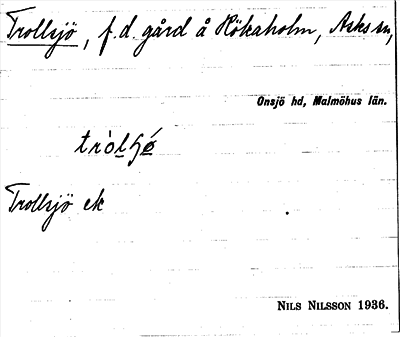 Trollsjö, f.d. gård å Hökaholm, Asks sn,
Onsjö hd, Malmöhus län.
Trollsjö ek
NILS NILSSON 1936.